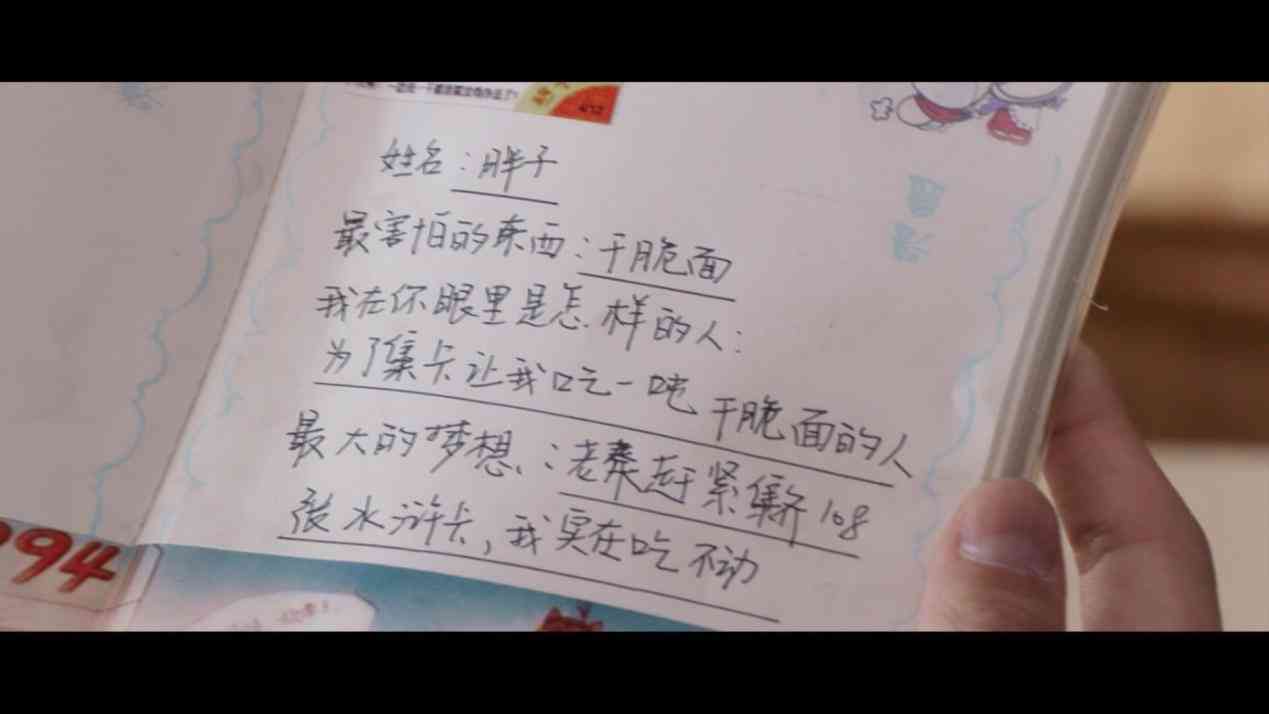 412
姓名：胖子
最害怕的东西：干脆面
我在你眼里是怎样的人：
为了集卡让我吃一吨干脆面的人
最大的梦想：老秦赶紧集齐108
张水浒卡，我实在吃不动
994